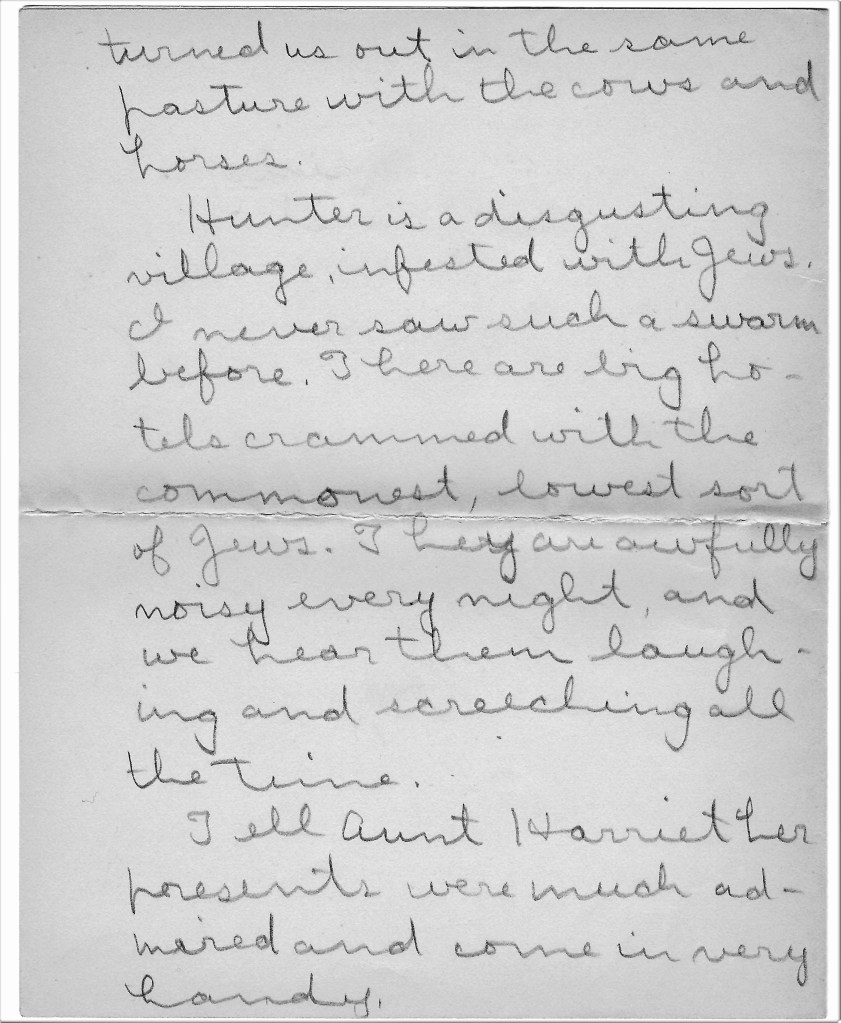 turned us out in the same
pasture with the cows and
horses.
Hunter is a disgusting
village, infested with Jews.
I never saw such a swarm
before. There are big ho-
tels crammed with the
commonest, lowest sort
of Jews. They are awfully
noisy every night, and
we hear them laugh-
ing and screeching all
the time.
Tell Aunt Harriet her
presents were much ad-
mired and come in very
handy.